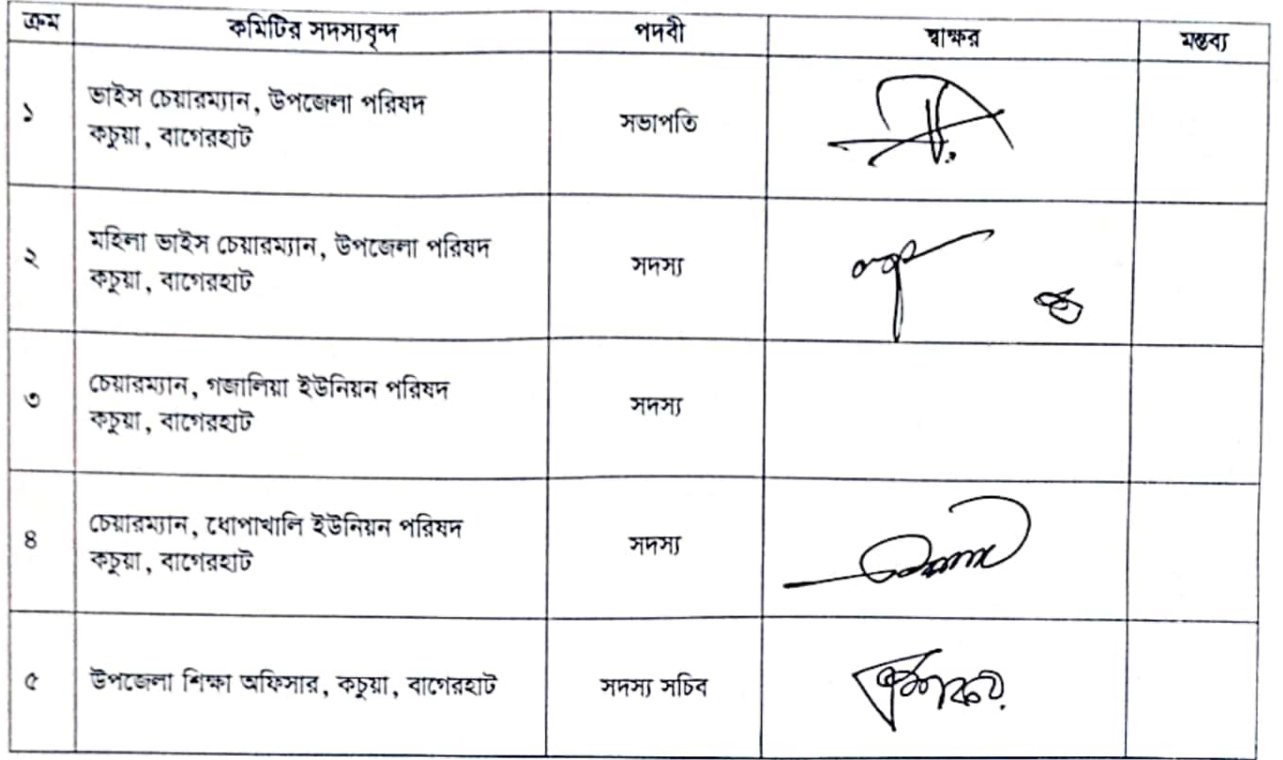 ক্রম কমিটির সদস্যবৃন্দ পদবী স্বাক্ষর মন্তব্য
১ ভাইস চেয়ারম্যান, উপজেলা পরিষদ সভাপতি
কচুয়া, বাগেরহাট
২ মহিলা ভাইস চেয়ারম্যান, উপজেলা পরিষদ সদস্য
কচুয়া, বাগেরহাট
৩ চেয়ারম্যান, গজালিয়া ইউনিয়ন পরিষদ সদস্য
কচুয়া, বাগেরহাট
৪ চেয়ারম্যান, ধোপাখালি ইউনিয়ন পরিষদ সদস্য
কচুয়া, বাগেরহাট
৫ উপজেলা শিক্ষা অফিসার, কচুয়া, বাগেরহাট সদস্য সচিব